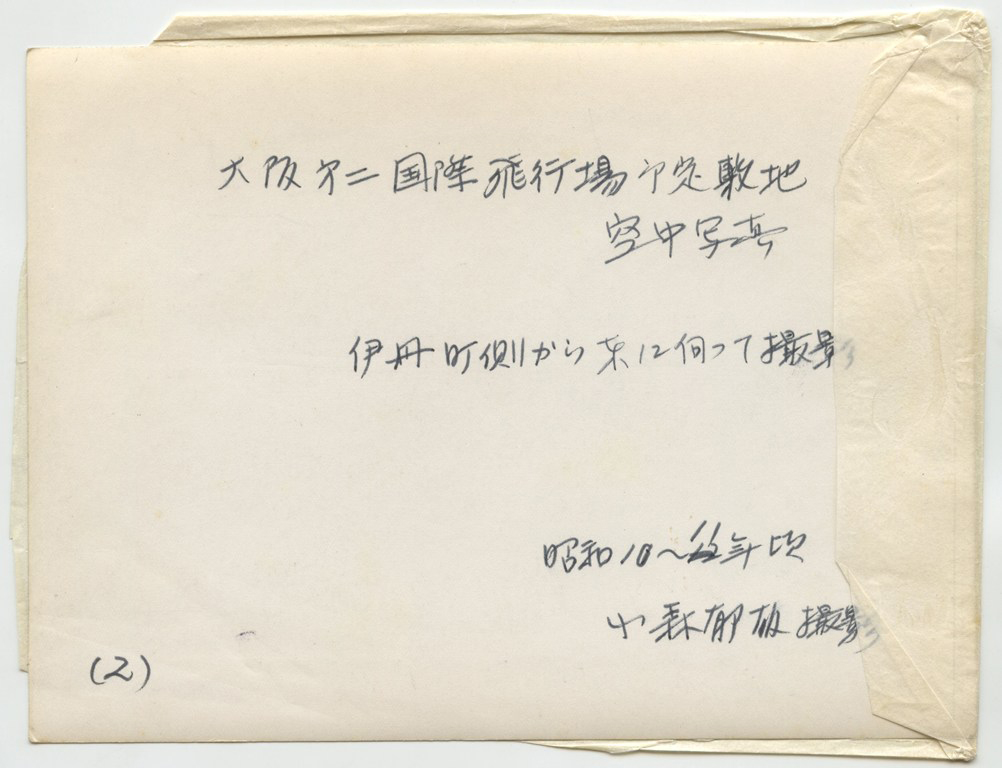 大阪第二国際飛行場予定敷地
空中写真
伊丹町側から東に向って撮影
昭和10〜11年頃
小森郁雄撮影
(2)